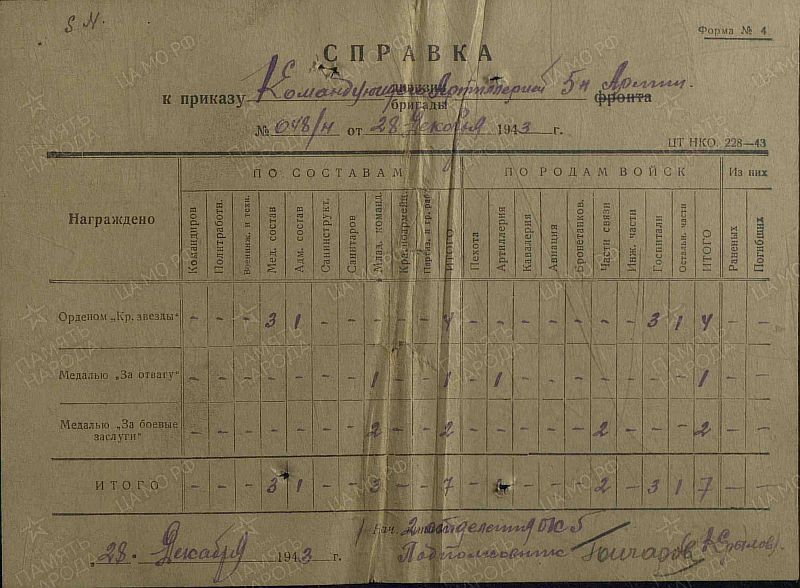 S N.
Форма № 4
СПРАВКА
к приказу Командующего Артиллерией 5й Армии. фронта
бригады
№ 048/н от 28 Декабря 1943 г.
ЦТ НКО. 228—43
Награждено
ПО СОСТАВАМ
ПО РОДАМ ВОЙСК
Из них
Командиров
Политработн.
Военинж. и техн.
Мед. состав
Адм. состав
Санинструкт.
Санитаров
Млад. команд.
Красноармейц.
Партиз. и гр. раб.
ИТОГО
Пехота
Артиллерия
Кавалерия
Авиация
Бронетанков.
Части связи
Инж. части
Госпитали
Остальн. части
ИТОГО
Раненых
Погибших
Орденом „Кр. звезды" - - - 3 1 - - - - - 4 - - - - - - - 3 1 4 - -
Медалью „За отвагу" - - - - - - - 1 - - 1 - 1 - - - - - - - 1 - -
Медалью „За боевые заслуги" - - - - - - - 2 - - 2 - - - - - 2 - - - 2 - -
ИТОГО - - - 3 1 - - 3 - - 7 - 1 - - - 2 - 3 1 7 - -
Нач. 2 отделения ОК 5
„28" Декабря 1943 г. Подполковник